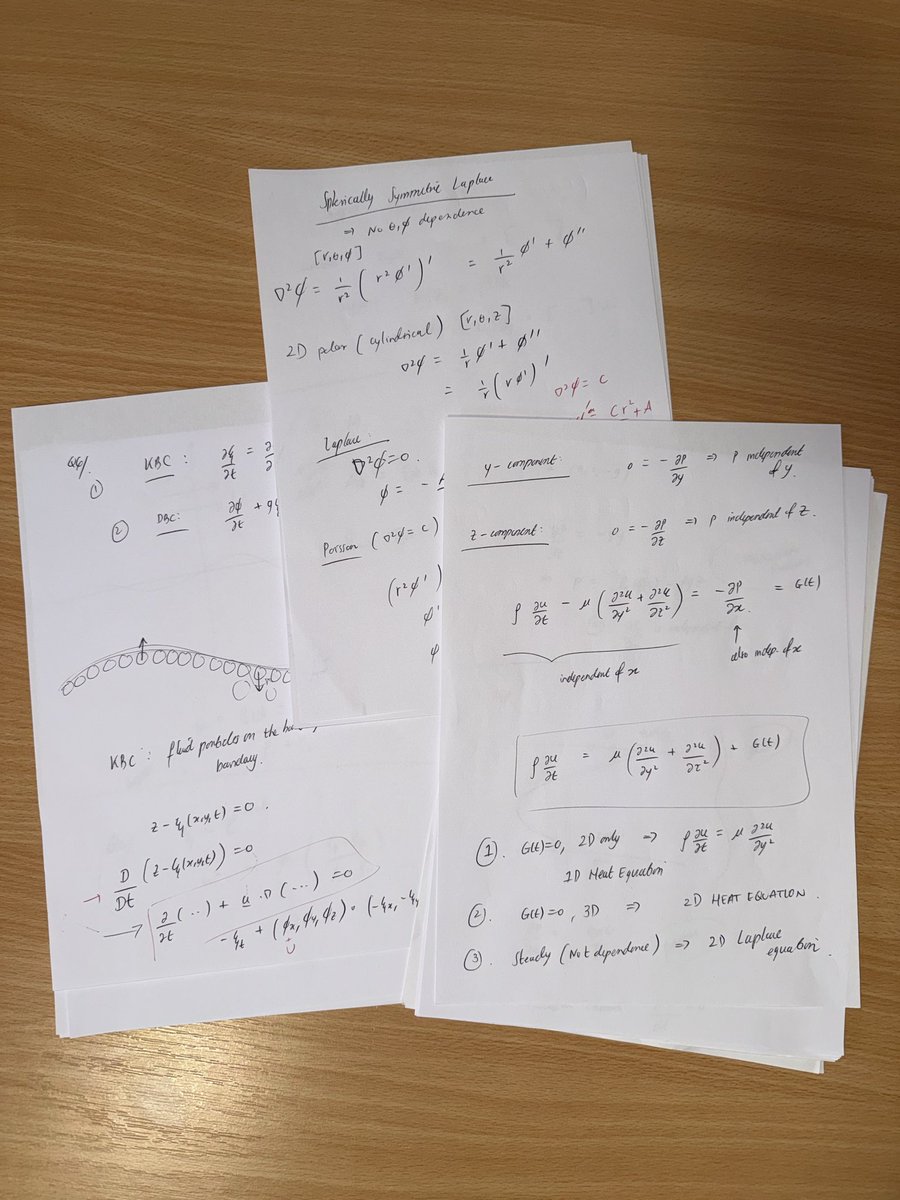 Spherically Symmetric Laplace
⇒ No θ,φ dependence
[r,θ,φ]
∇²φ = 1/r² (r²φ′)′ = 1/r² φ′ + φ″
2D polar (cylindrical) [r,θ,z]
∇²φ = 1/r φ′ + φ″
= 1/r (rφ′)′
∇²φ = C
Cr² + A
Laplace:
∇²φ=0.
φ = -
Poisson (∇²φ = C)
(r²φ′)
φ′
φ
① KBC: ∂ξ/∂t =
② DBC: ∂φ/∂t + g
KBC: fluid particles on the
boundary.
z-ξ(x,y,t) = 0.
D/Dt (z-ξ(x,y,t)) = 0
∂/∂t (...) + u.∇(...) = 0
-ξt + (φx, φy, φz) · (-ξx, -ξy
y-component: 0 = -∂P/∂y ⇒ P independent
of y.
z-component: 0 = -∂P/∂z ⇒ P independent of z.
ρ ∂u/∂t - μ (∂²u/∂y² + ∂²u/∂z²) = -∂P/∂x = G(t)
↑
independent of x
also indep. of x
ρ ∂u/∂t = μ (∂²u/∂y² + ∂²u/∂z²) + G(t)
①. G(t)=0, 2D only ⇒ ρ ∂u/∂t = μ ∂²u/∂y²
1D Heat Equation
②. G(t)=0, 3D ⇒ 2D HEAT EQUATION.
③. Steady (No t dependence) ⇒ 2D Laplace
equation.